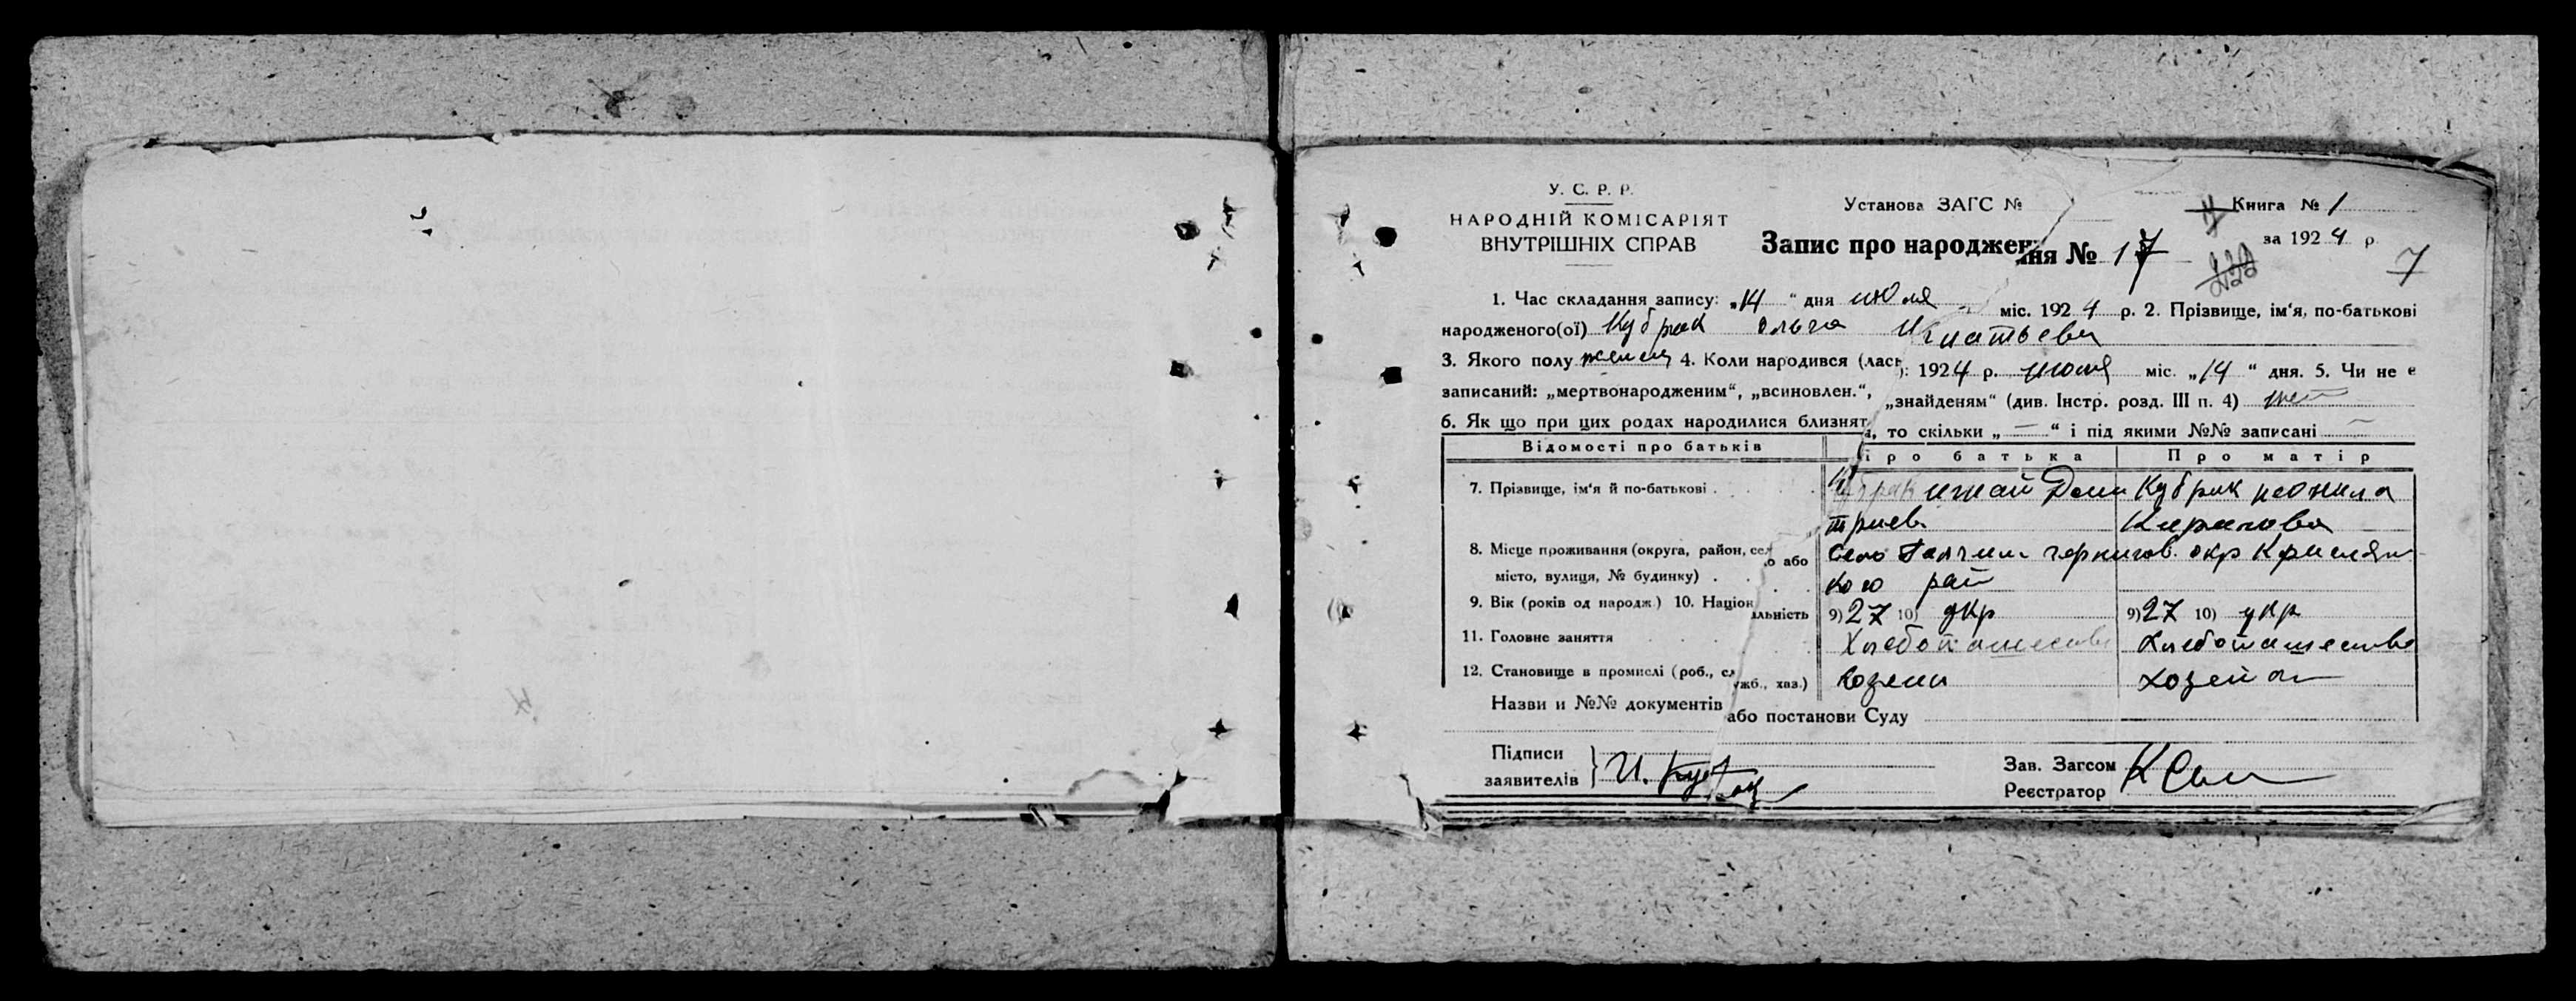 У. С. Р. Р.
НАРОДНІЙ КОМІСАРІЯТ
ВНУТРІШНІХ СПРАВ
Установа ЗАГС №
Книга № 1
за 1924 р.
Запис про народження № 17
7
1. Час складання запису: „14“ дня июля міс. 1924 р. 2. Прізвище, ім‘я, по-батькові
народженого(ої) Кубрак Ольга Игнатьева
3. Якого полу 4. Коли народився (лась): 1924 р. июля міс. „14“ дня. 5. Чи не є
записаний: „мертвонародженим“, „всиновлен.“, „знайденям“ (див. Інстр. розд. III п. 4) нет
6. Як що при цих родах народилися близнята, то скільки „—“ і під якими №№ записані —
Відомості про батьків Про батька Про матір
7. Прізвище, ім‘я й по-батькові Кубрак Дми Кубрак
триев
8. Місце проживання (округа, район, село або Село чернигов. окр
місто, вулиця, № будинку) кого рай
9. Вік (років од народж.) 10. Національність 9) 27 10) укр 9) 27 10) укр
11. Головне заняття Хлебопашество Хлебопашество
12. Становище в промислі (роб., служб., хаз.)
Назви и №№ документів або постанови Суду
Підписи
заявителів } И. Кубрак
Зав. Загсом
Реєстратор